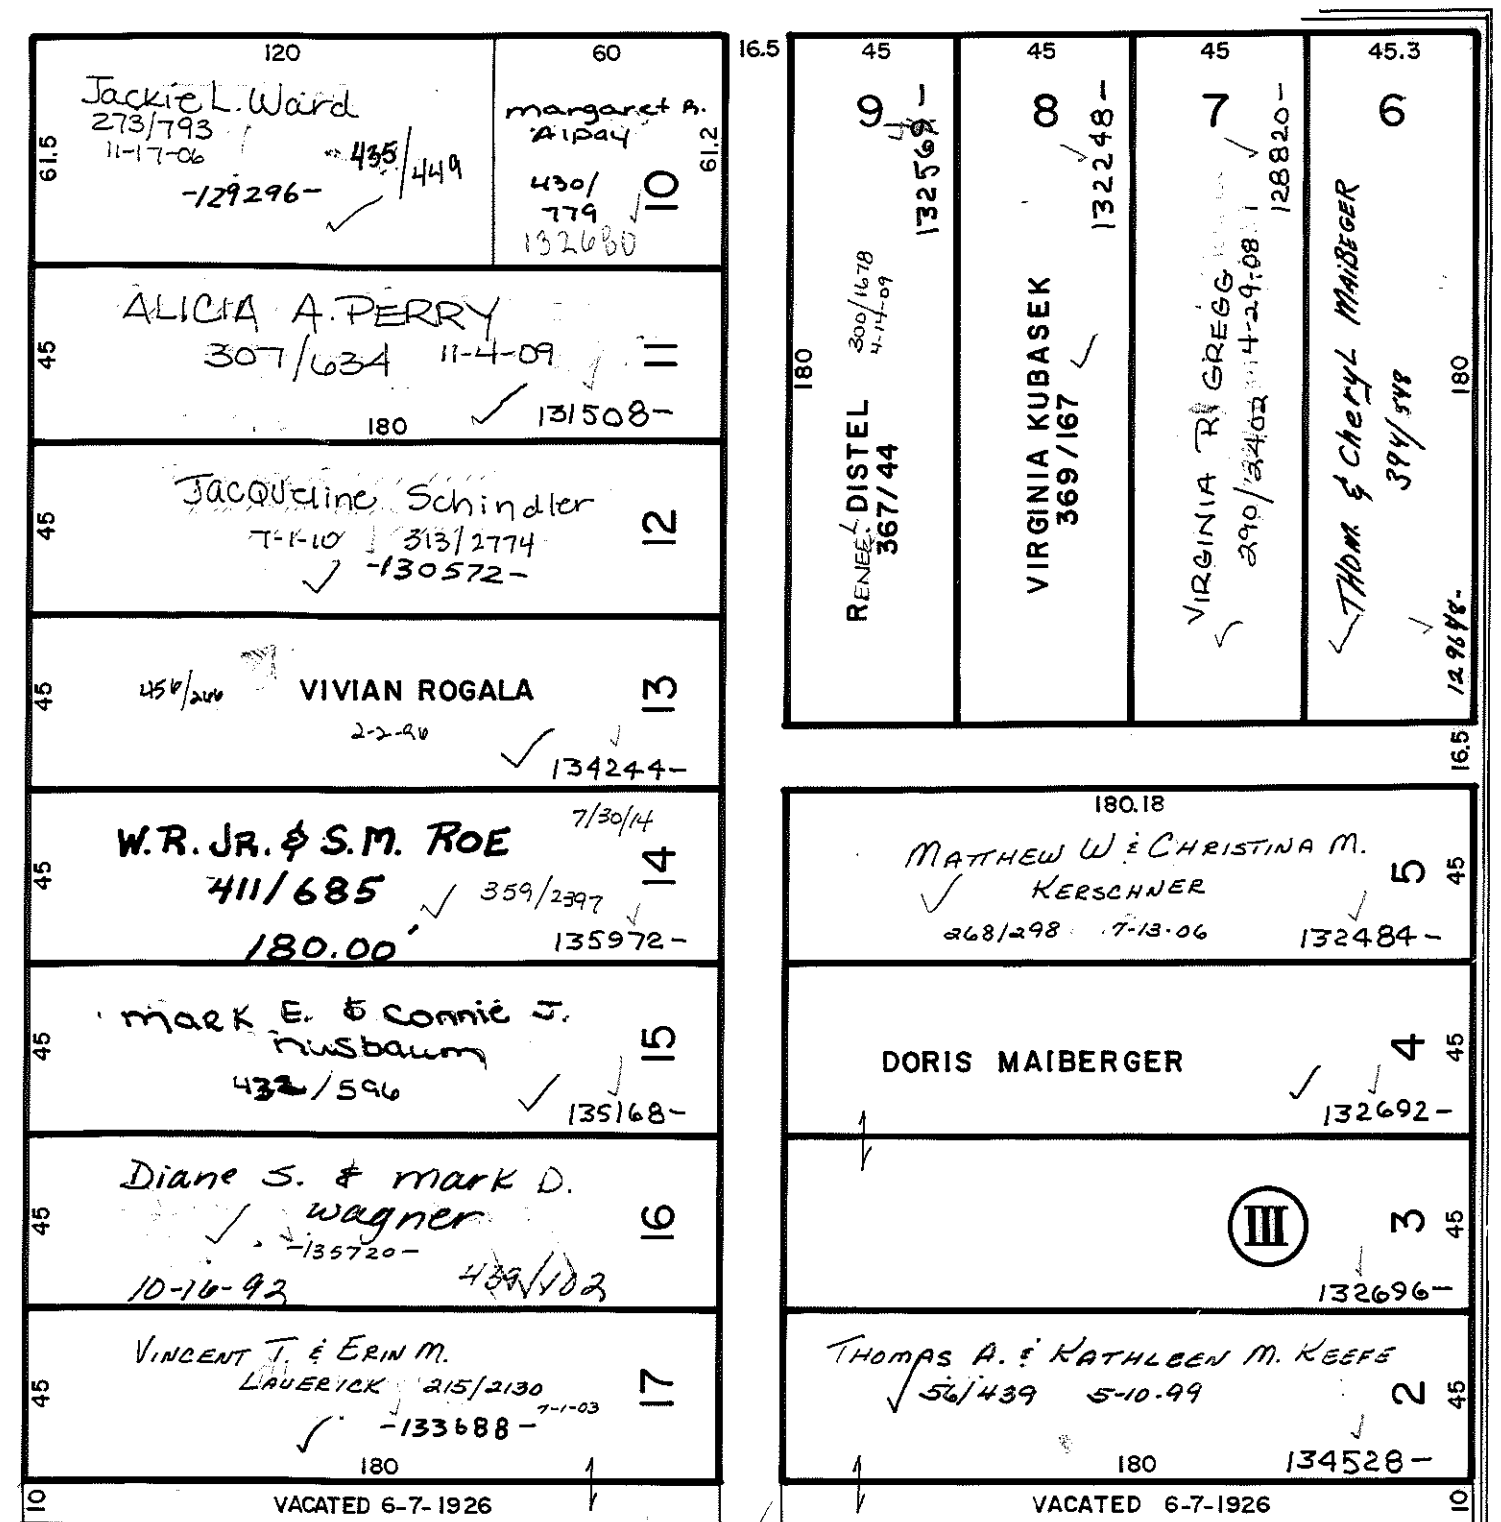 120
60
Jackie L. Ward
273/793
11-17-06
435/449
-129296-
61.5
margaret R.
Alpay
430/
779
10
61.2
ALICIA A. PERRY
307/634 11-4-09
11
45
131508-
180
Jacqueline Schindler
7-1-10 313/2774
-130572-
12
45
VIVIAN ROGALA
2-2-96
13
45
134244-
W.R. JR. & S.M. ROE
7/30/14
411/685
359/2397
14
45
180.00
135972-
mark E. & Connie J.
nusbaum
15
45
135168-
Diane S. & mark D.
wagner
-135720-
16
45
10-16-92
439/102
VINCENT J. & ERIN M.
LAVERICK 215/2130
7-1-03
-133688-
17
45
180
10
VACATED 6-7-1926
16.5
45
9
RENEE DISTEL
367/44
300/1678
4-14-09
180
45
8
132248-
VIRGINIA KUBASEK
369/167
45
7
128820-
VIRGINIA R GREGG
290/2402 4-29-08
45.3
6
THOM. & Cheryl MAIBEGER
394/548
180
129648-
16.5
180.18
MATTHEW W & CHRISTINA M.
KERSCHNER
268/298 7-13-06
5
45
132484-
DORIS MAIBERGER
4
45
132692-
III
3
45
132696-
THOMAS A. & KATHLEEN M. KEEFE
56/439 5-10-99
2
45
134528-
180
10
VACATED 6-7-1926